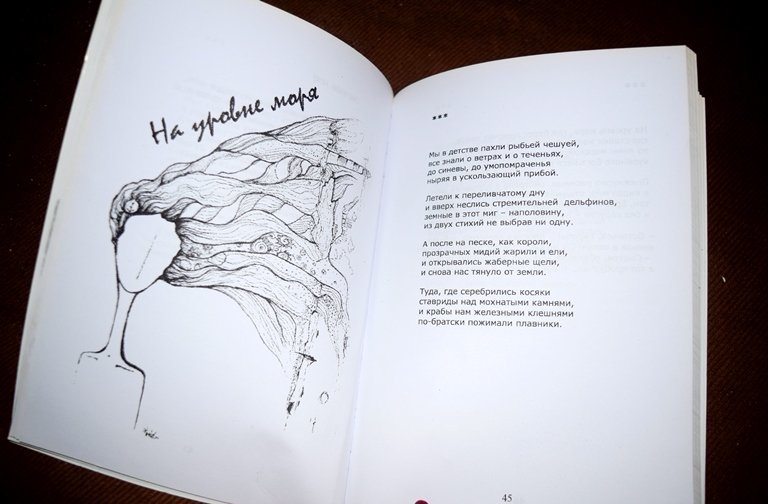 На уровне моря
***
Мы в детстве пахли рыбьей чешуей,
все знали о ветрах и о теченьях,
до синевы, до умопомраченья
ныряя в ускользающий прибой.
Летели к переливчатому дну
и вверх неслись стремительней дельфинов,
земные в этот миг – наполовину,
из двух стихий не выбрав ни одну.
А после на песке, как короли,
прозрачных мидий жарили и ели,
и открывались жаберные щели,
и снова нас тянуло от земли.
Туда, где серебрились косяки
ставриды над мохнатыми камнями,
и крабы нам железными клешнями
по-братски пожимали плавники.
45